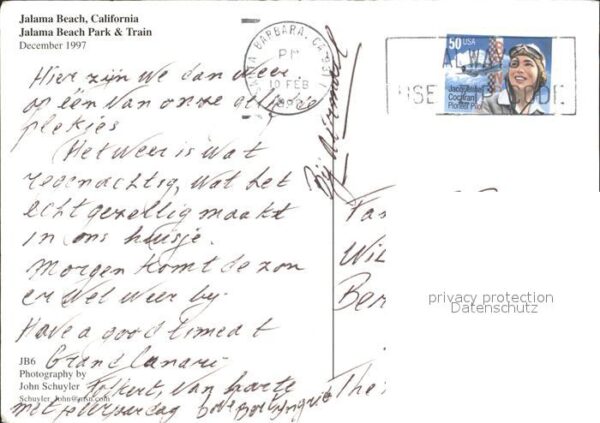 Jalama Beach, California
Jalama Beach Park & Train
December 1997
Hier zijn we dan weer
op één van onze
plekjes
Het weer is wat
regenachtig, wat het
echt gezellig maakt
in ons huisje.
Morgen komt de zon
er wel weer by.
Have a good time at
Grand Canary
van harte
met je verjaardag
JB6
Photography by
John Schuyler
Schuyler_John@msn.com
SANTA BARBARA, CA
PM
10 FEB
ALWAYS
USE ZIP CODE
50 USA
Jacqueline
Cochran
Pioneer Pilot
Fa
Wil
Ber
The
privacy protection
Datenschutz